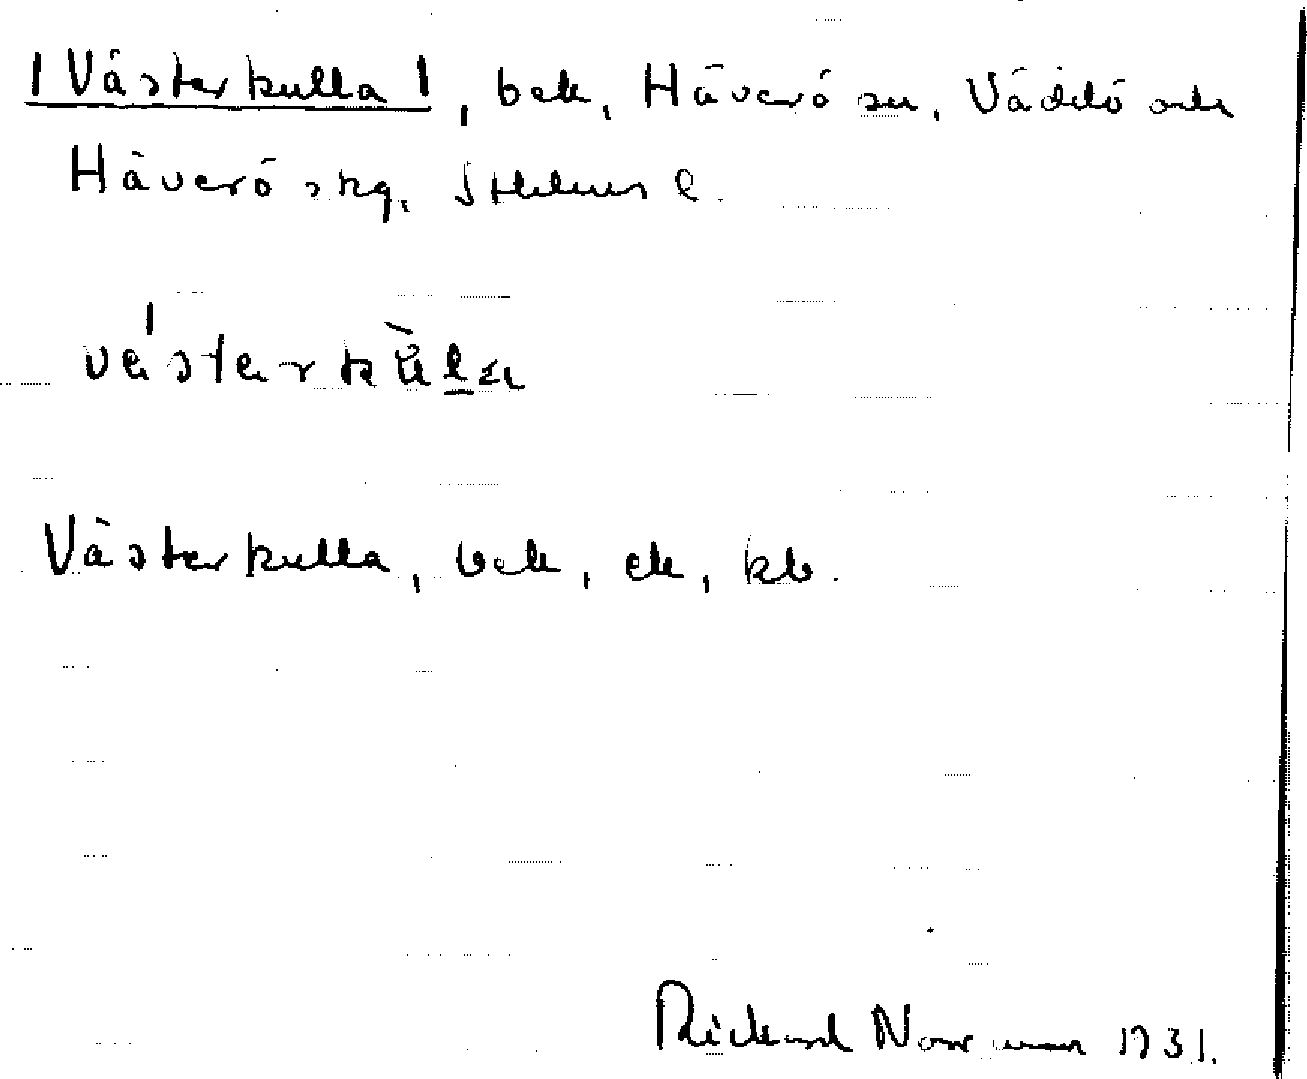 |Västerkulla|, bek, Häverö sn, Väddö och
Häverö skg, Sthlms l.
västərkùla
Västerkulla, bek, ek, kb.
Rickard Norrman 1931.